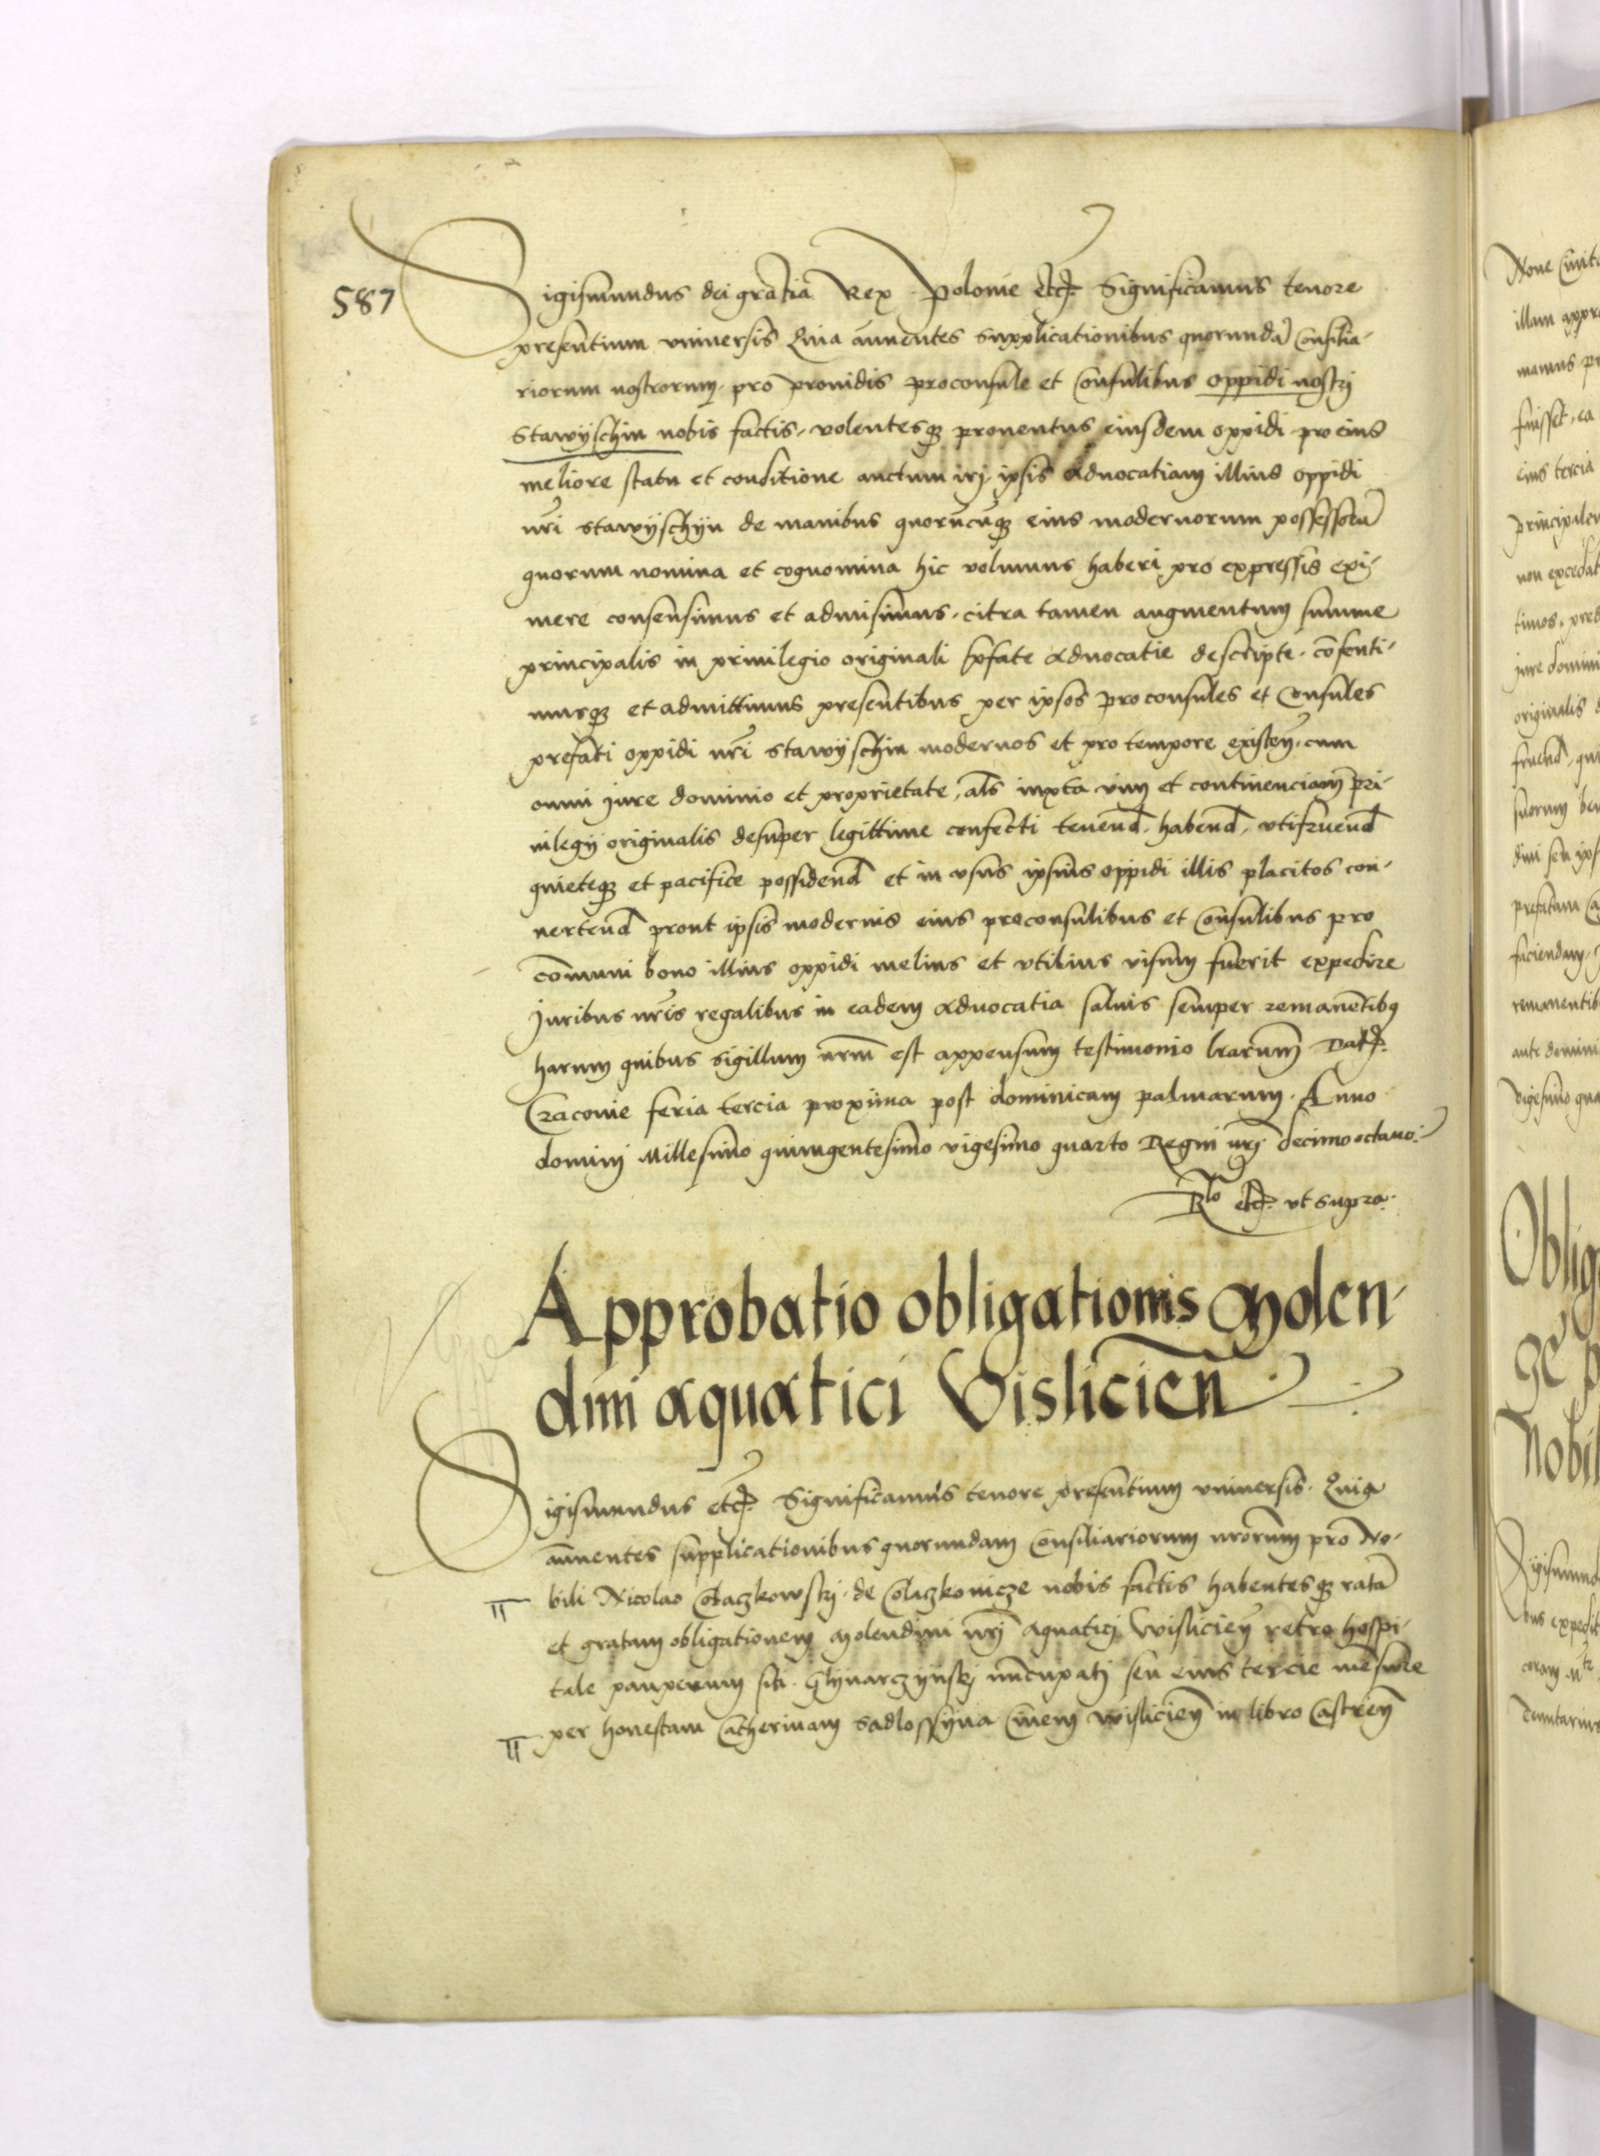 587
Sigismundus dei gratia Rex Polonie etc. Significamus tenore
presentium vniuersis Quia annuentes supplicationibus quorundã Consilia-
riorum nostrorum, pro prouidis proconsule et Consulibus oppidi nostri
Stawyschin nobis factis, volentesq3 prouentus eiusdem oppidi pro eius
meliore statu et conditione auctum iri, ipsis aduocatiam illius oppidi
nrĩ Stawyschyn de manibus quorũcũq3 eius modernorum possessorũ
quorum nomina et cognomina hic volumus haberi pro expressis exi-
mere consensimus et admisimus, citra tamen augmentum summe
principalis in priuilegio originali pfate aduocatie descripte, cõsenti-
musq3 et admittimus presentibus per ipsos proconsules et Consules
prefati oppidi nrĩ Stawyschin modernos et pro tempore existeñ, cum
omni Jure dominio et proprietate, als iuxta vim et continenciam pri-
uilegij originalis desuper legittime confecti tenend, habend, vtifruend
quieteq3 et pacifice possidend et in vsus ipsius oppidi illis placitos con-
uertend prout ipsis modernis eius proconsulibus et Consulibus pro
cõmuni bono illius oppidi melius et vtilius visum fuerit expedire
Juribus nrĩs regalibus in eadem aduocatia saluis semper remanẽtibq
harum quibus sigillum nrm̃ est appensum testimonio lrarum Dat.
Cracouie feria tercia proxima post dominicam palmarum. Anno
domini Millesimo quingentesimo vigesimo quarto Regni nrĩ decimo octauo.
Rlo etc. vt supra.
Approbatio obligationis Molen-
dini aquatici Vislicieñ
Sigismundus etc. Significamus tenore presentium vniuersis. Quia
annuentes supplicationibus quorundam Consiliariorum nrorum pro No-
bili Nicolao de nobis factis habentesq3 ratã
et gratam obligationem Molendini nrĩ aquatici Wislicieñ retro hospi-
tale pauperum siti. nũcupati seu eius tercie mẽsure
per honestam Catherinam Sadlossyna Ciuem Wislicieñ in libro Castreñ